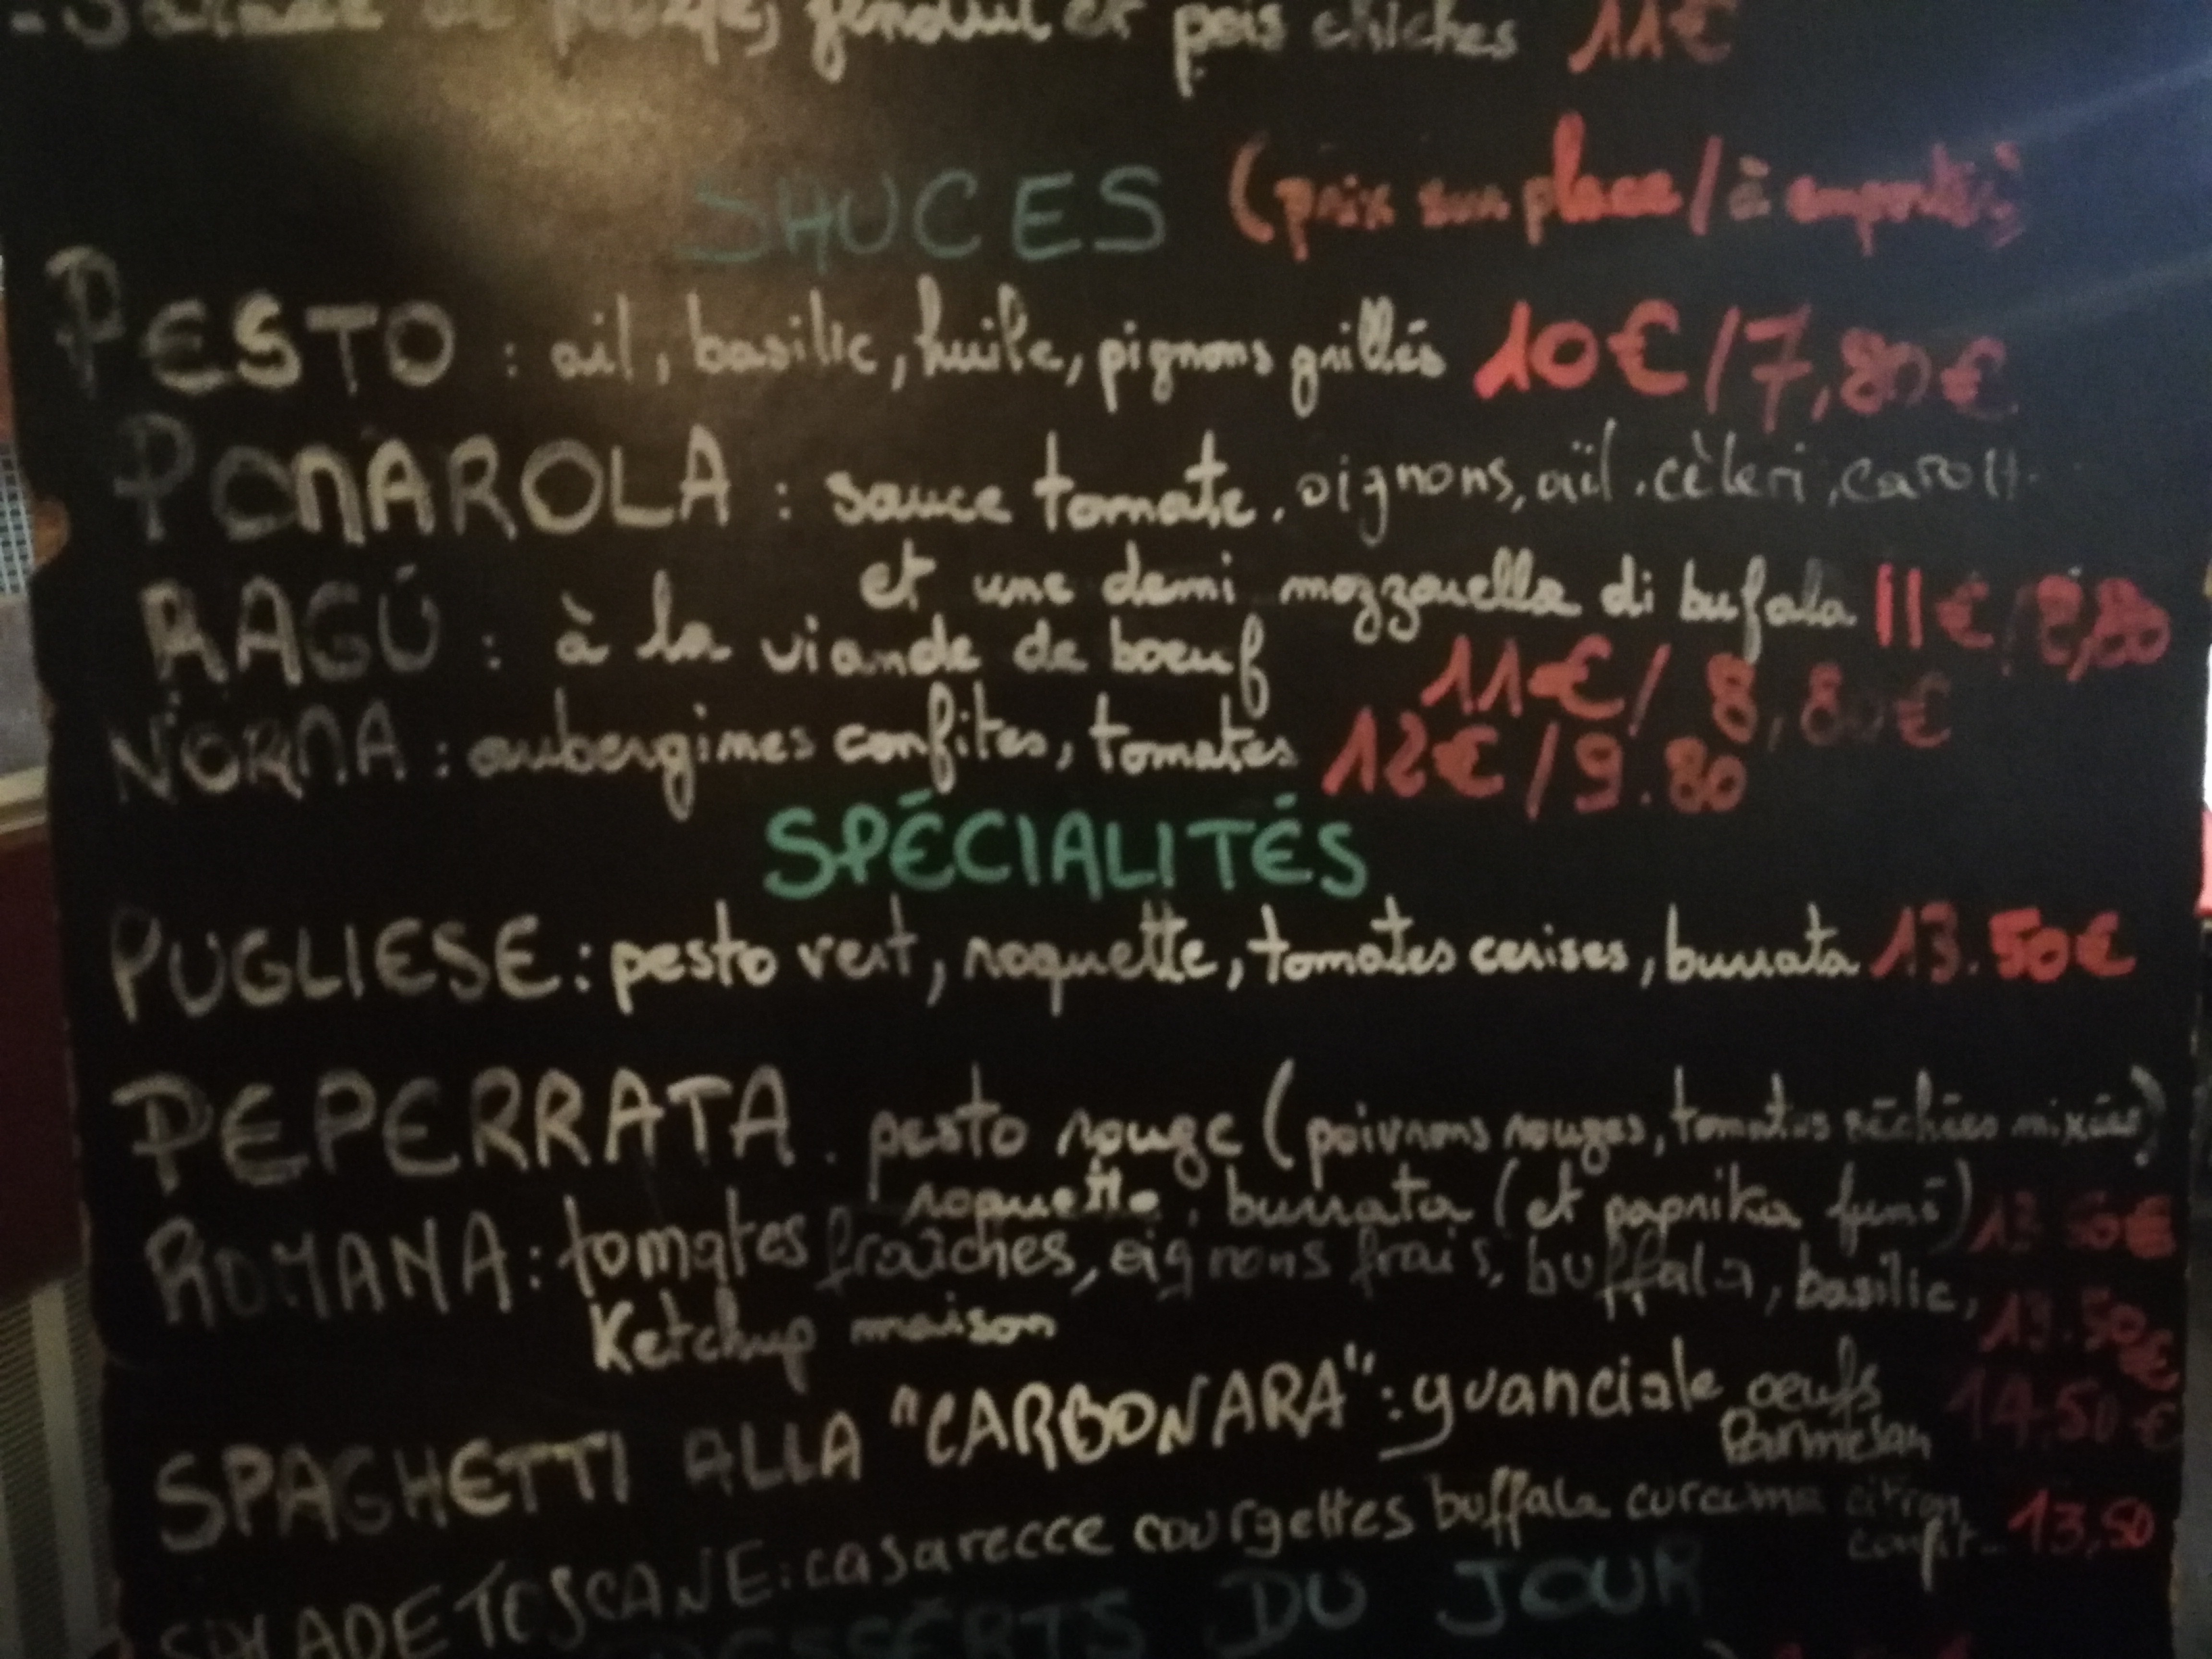 et pois chiches 11€
SAUCES (prix sur place / à emporter)
PESTO : ail, basilic, huile, pignons grillés 10€ / 7,80€
POMAROLA : sauce tomate, oignons, aïl, cèleri, carott
et une demi mozzarella di bufala 11€ / 8,80
RAGÚ : à la viande de boeuf 11€ / 8,80€
NORMA : aubergines confites, tomates 12€ / 9.80
SPÉCIALITÉS
PUGLIESE : pesto vert, roquette, tomates cerises, burrata 13.50€
PEPERRATA . pesto rouge (poivrons rouges, tomates séchées mixées)
roquette, burrata (et paprika fumé) 13.50€
ROMANA : tomates fraîches, oignons frais, buffala, basilic,
Ketchup maison 13.50€
SPAGHETTI ALLA "CARBONARA" : guanciale oeufs 14.50€
Parmesan
SALADE TOSCANE : casarecce courgettes buffala curcuma citron
confit 13,50
DESSERTS DU JOUR